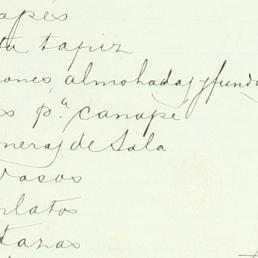 apés
ta tapiz
ones, almohadas y fund
s pª canapé
neras de Sala
vasos
platos
tazas